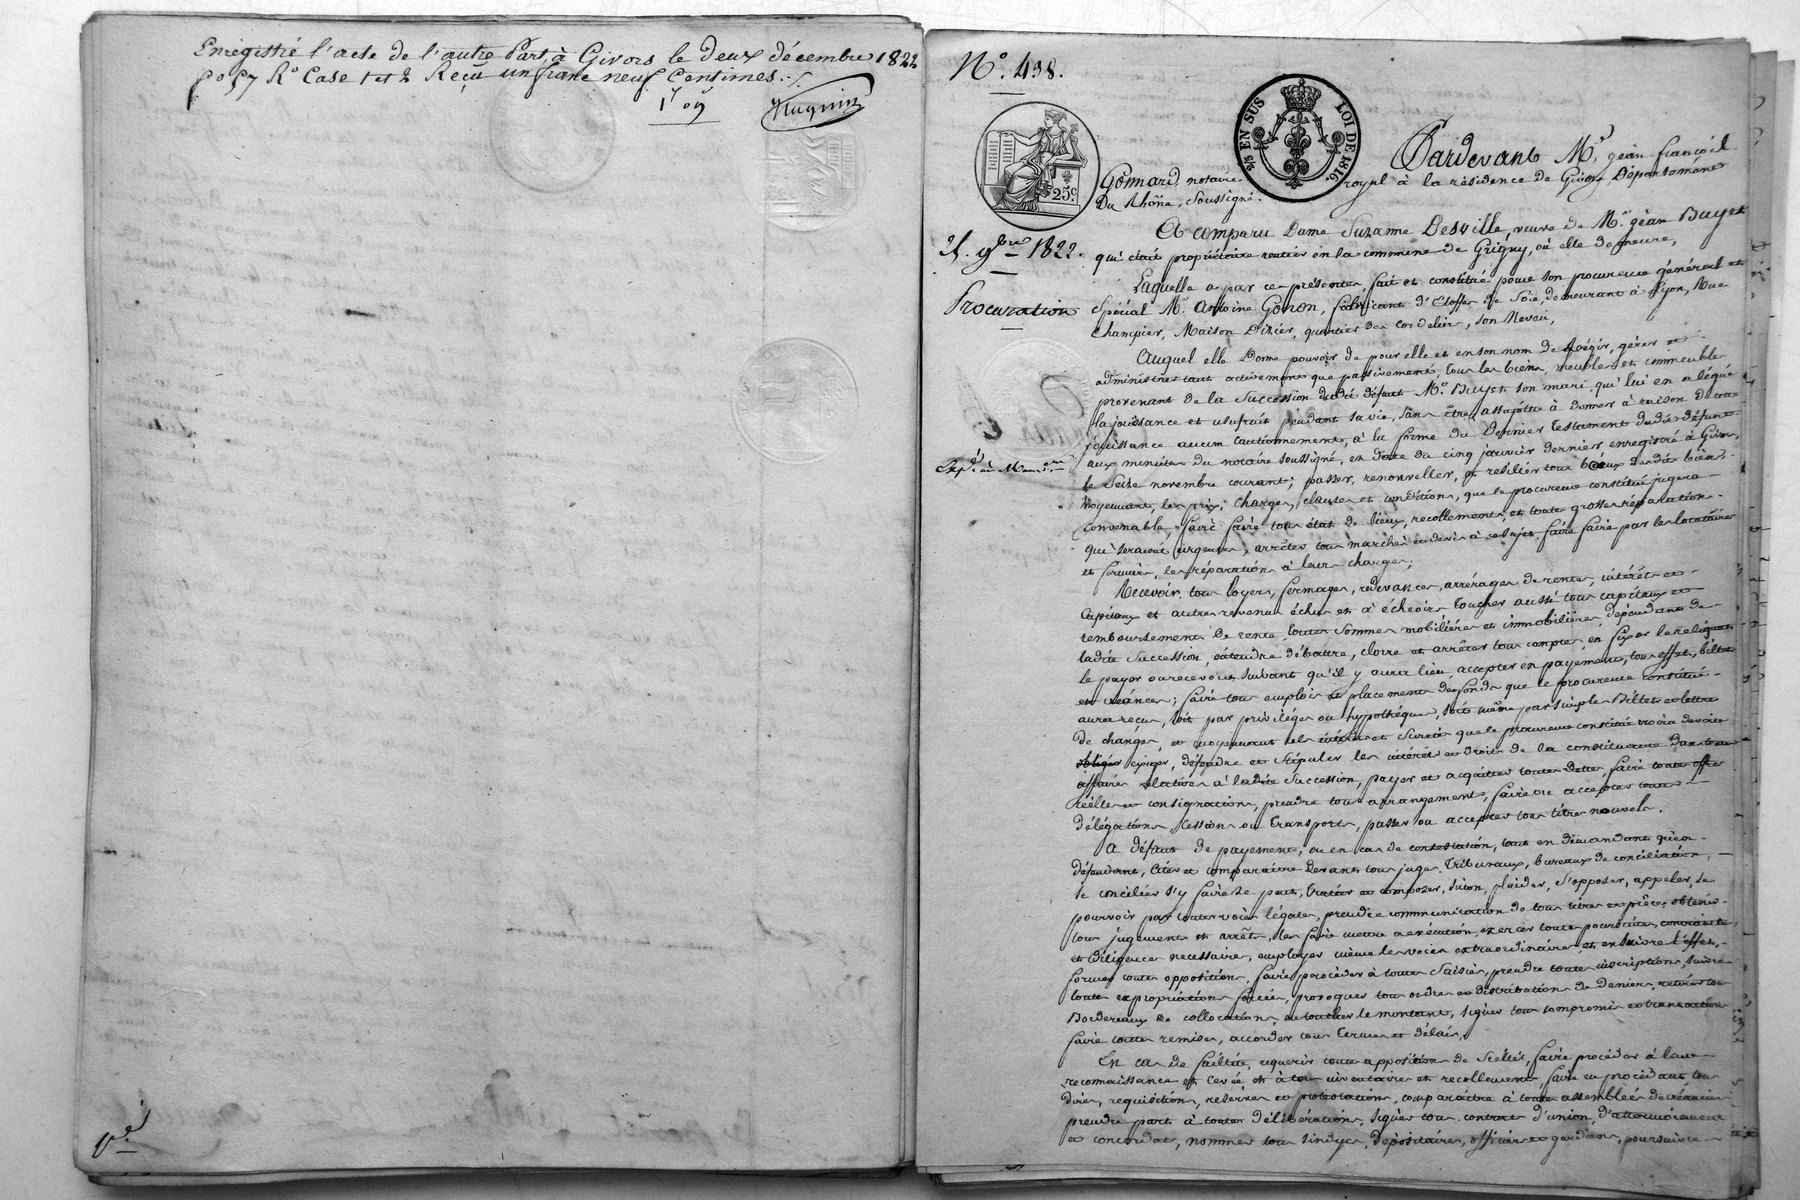 Enregistré l'acte de l'autre Part à Givors le deux décembre 1822
fo 57 Ro Case 1 et 2 Reçu un franc neuf Centimes
1f 09
N.o 438.
2/5 EN SUS LOI DE 1816.
25c
Pardevant Me jean françois
Gonnard, notaire royal à la résidence de Givors Département
Du Rhône, Soussigné.
25. 9bre 1822.
Procuration
A comparu Dame Suzanne Desville, veuve de Mr jean Buyet
qui était propriétaire rentier en la commune de Grigny, où elle demeure,
Laquelle a par ces présentes, fait et constitué pour son procureur général et
Spécial Mr Antoine Gonon, fabricant d'Etoffes de Soie, demeurant à Lyon, Rue
Champier, Maison Dizier, quartier des Cordeliers, son Neveu,
Auquel elle Donne pouvoir de pour elle et en son nom de Régir, gérer et
administrer tant activement que passivement, tous les biens, meubles et immeubles
provenant de la Succession dudit défunt Mr Buyet son mari, qui lui en a légué
la jouissance et usufruit pendant sa vie, sans être assujettie à donner à raison de cette
jouissance aucun Cautionnement, à la forme du Dernier testament dudit défunt
aux minutes du notaire soussigné, en date du cinq janvier dernier, enregistré à Givors,
le Seize novembre courant; passer, renouveller, et résilier tous baux desdits biens,
Moyennant, les prix, Charges, clauses et conditions, que le procureur constitué jugera
Convenable, faire faire tous état de lieux, recollements, et toute grosses réparations
qui seraient urgentes, arrêter tous marchés et devis à ce sujet, faire faire par les locataires
et fermiers, les réparations à leurs charges;
Recevoir, tous loyers, fermages, redevances, arrérages de rentes, intérêts et
Capitaux et autres revenus échus et à échoir, toucher aussi tous capitaux et
remboursements de rente, toutes Sommes mobilières et immobilières, dépendant de
ladite Succession, entendre débattre, clore et arrêter tous comptes, en fixer le reliquat
le payer ou recevoir suivant qu'il y aura lieu, accepter en payement, tous effets, billets
et créances; faire tous emplois et placements des fonds que le procureur constitué
aura reçus, soit par privilège ou hypothèque, soit même par simples Billets et lettres
de change, et moyennant tels intérêts et Sureté que le procureur constitué voira devoir
exiger, défendre et Stipuler les intérêts et Droits de la constituante dans toutes
affaires relatives à ladite Succession, payer et acquitter toutes dettes, faire toutes offres
réelles et consignations, prendre tous arrangements, faire ou accepter toutes
délégations, cessions ou transports, passer ou accepter tous titres nouvels.
A défaut de payement, ou en cas de contestation, tant en demandant qu'en
défendant, Citer et comparaitre devant tous juges, Tribunaux, bureaux de conciliation,
Se concilier s'y faire se peut, traiter et composer, sinon, plaider, s'opposer, appeler, se
pourvoir par toutes voies légales, prendre communication de tous titres et pièces, obtenir
tous jugements et arrêts, les faire mettre à exécution, exercer toutes poursuites, contraintes
et diligences nécessaires, employer même les voies extraordinaires et en suivre l'effet,
former toute opposition, faire procéder à toutes Saisies, prendre toute inscriptions, suivre
toute expropriations forcées, provoquer tous ordres et distributions de deniers, retirer tous
Bordereaux de collocations, en toucher le montant, signer tous compromis et transactions
faire toutes remises, accorder tous termes et délais,
En cas de faillite, requérir toute apposition de Scellés, faire procéder à leur
reconnaissance et levée, et à tous inventaires et recollements, faire en procédant tous
dires, requisitions, reserves et protestations, comparaitre à toute assemblée de créanciers
prendre part à toutes délibérations, signer tous contrats d'union, d'attermoiement
et concordat, nommer tous Sindics, dépositaires, officiers et gardiens, poursuivre